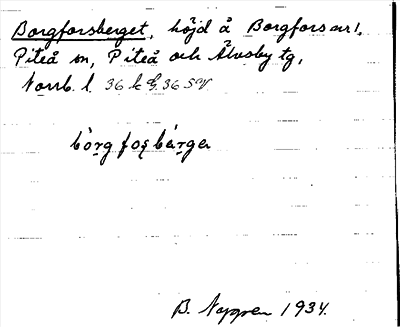 Borgforsberget, höjd å Borgfors arr!,
Piteå sn, Piteå och Älvsby tg,
Norrb. l. 36 SV
bórg fosbárge
B. 1934.